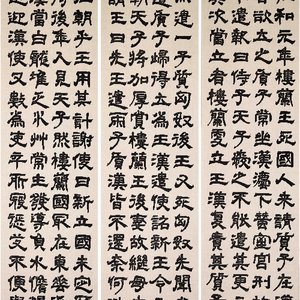 和元年樓蘭王死國人来請質子
欲立之質子常坐漢法下蠶室宮刑
遣報曰侍子天子愛之不能遣其
其次當立者樓蘭更立王漢復責其質子
遣一子質匈奴後王又死匈奴先聞
遣質子歸得立為王漢遣使詔新王令
朝天子將加厚賞樓蘭王後妻故繼
王曰先王遣兩子質漢皆不還奈
朝乎王用其計謝使曰新立國未
後年入見天子然樓蘭國冣在東垂
漢當白龍堆乏水草常主發導負水儋
迎漢使又數為吏卒所寇懲艾不